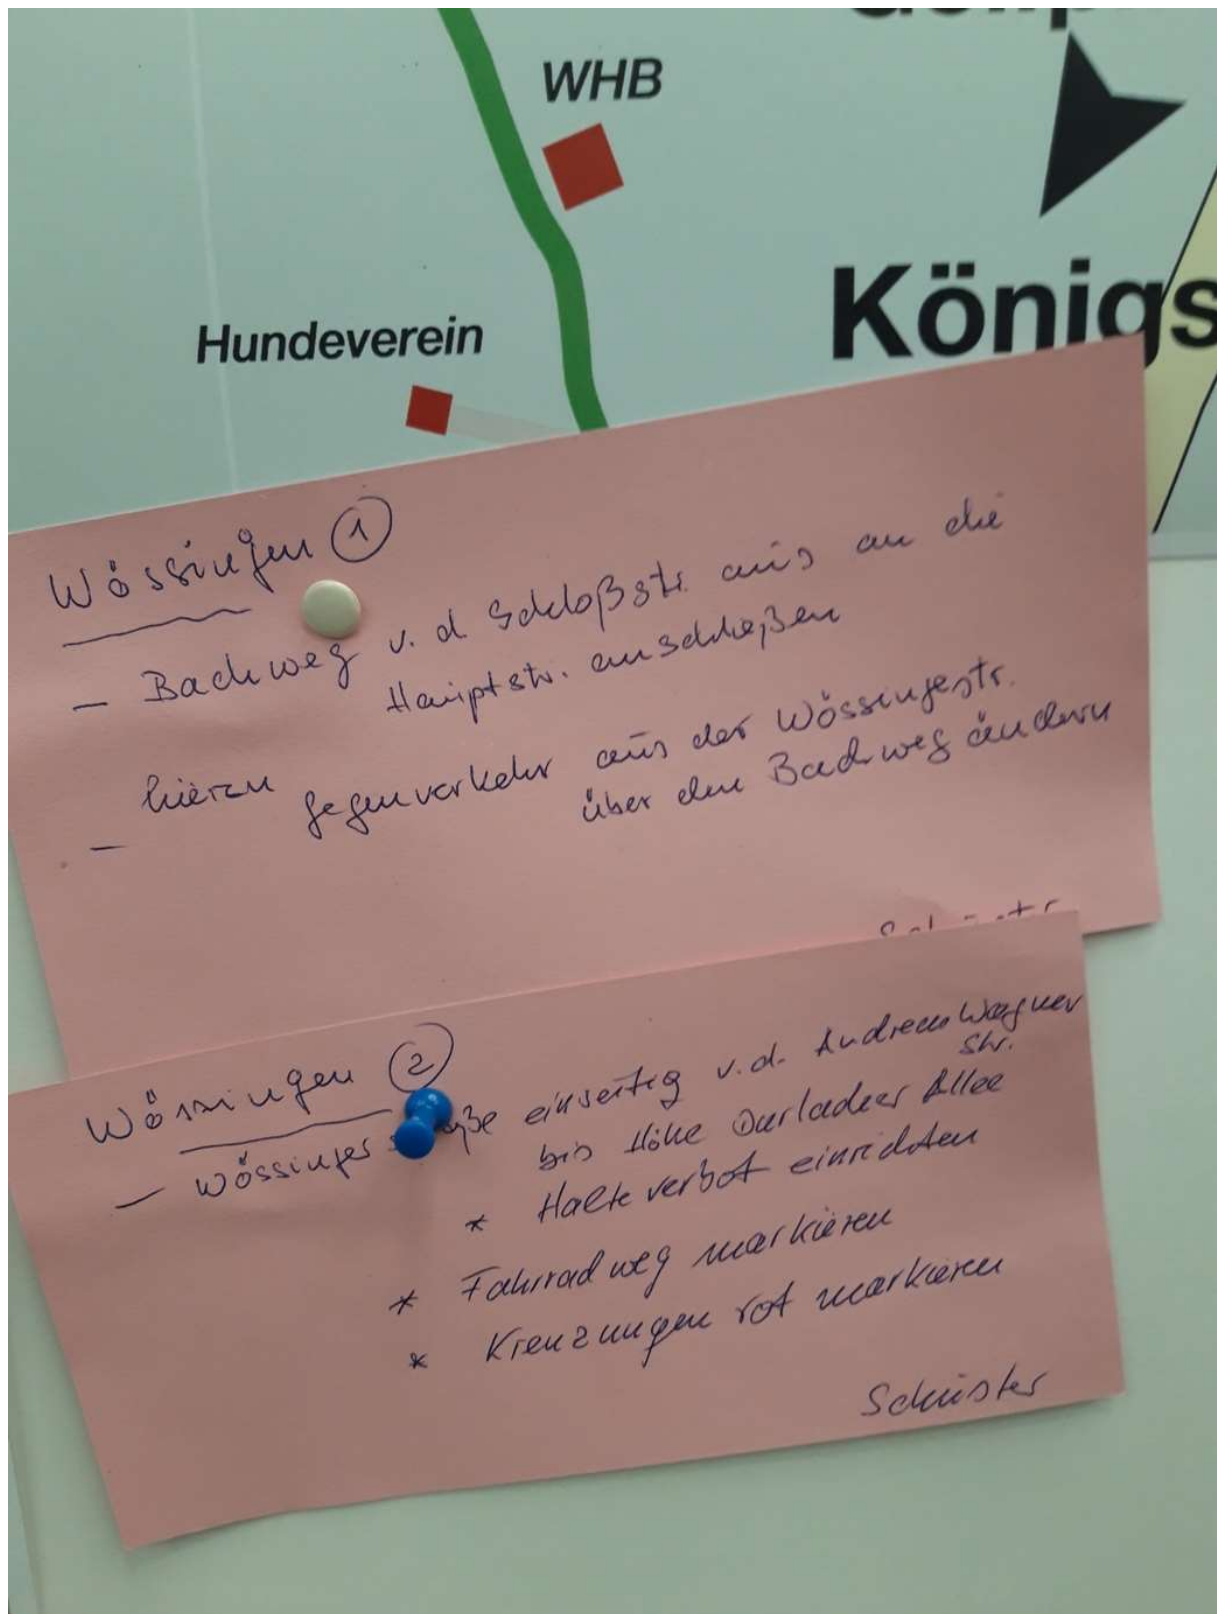 WHB
Königs
Hundeverein
Wössingen 1
- Bachweg v. d. Schloßstr. aus an die
Hauptstr. anschließen
- hierzu gegenverkehr aus der Wössingestr.
über den Bachweg ändern
Wössingen 2
- Wössinger einseitig v. d. Andreas Wagner
Str.
bis Höhe Durlacher Allee
* Halteverbot einrichten
* Fahrradweg markieren
* Kreuzungen rot markieren
Schuster